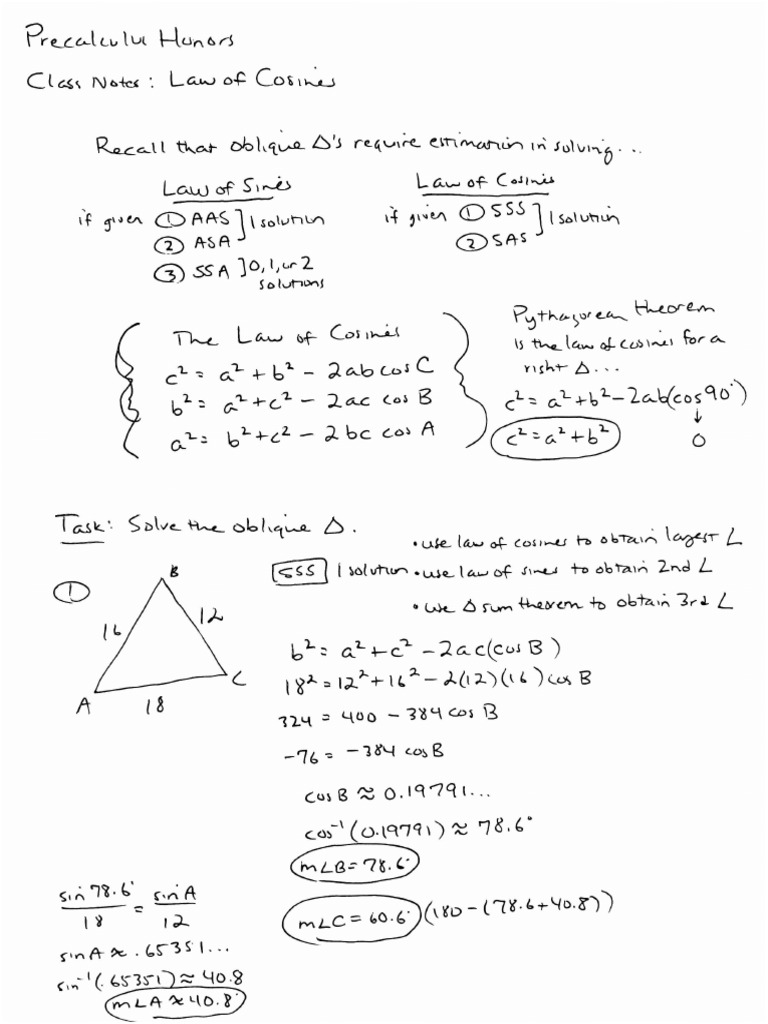 Precalculus Honors
Class Notes: Law of Cosines
Recall that oblique Δ's require estimation in solving...
Law of Sines
if given ① AAS ] 1 solution
② ASA
③ SSA ] 0, 1, or 2
solutions
Law of Cosines
if given ① SSS ] 1 solution
② SAS
The Law of Cosines
c² = a² + b² - 2ab cos C
b² = a² + c² - 2ac cos B
a² = b² + c² - 2bc cos A
Pythagorean theorem
is the law of cosines for a
right Δ...
c² = a² + b² - 2ab(cos 90°)
↓
c² = a² + b²
0
Task: Solve the oblique Δ.
①
B
16
12
A
18
C
SSS 1 solution
• use law of cosines to obtain largest ∠
• use law of sines to obtain 2nd ∠
• use Δ sum theorem to obtain 3rd ∠
b² = a² + c² - 2ac(cos B)
18² = 12² + 16² - 2(12)(16) cos B
324 = 400 - 384 cos B
-76 = -384 cos B
cos B ≈ 0.19791...
cos⁻¹(0.19791) ≈ 78.6°
m∠B = 78.6°
m∠C = 60.6° (180 - (78.6 + 40.8))
sin 78.6° / 18 = sin A / 12
sin A ≈ .65351...
sin⁻¹(.65351) ≈ 40.8
m∠A ≈ 40.8°